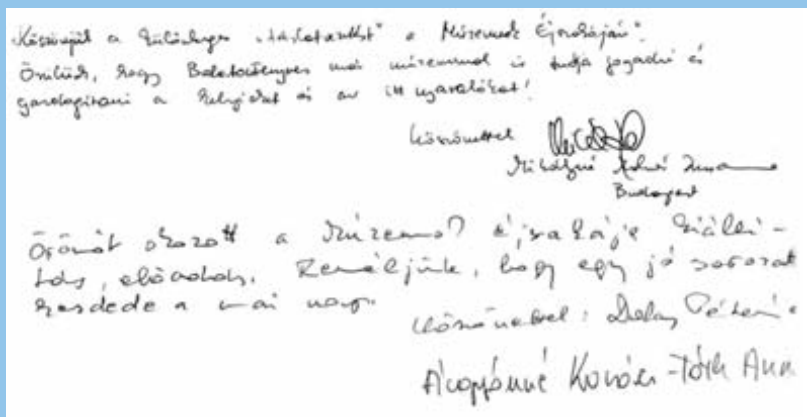 Köszönjük a különleges „tárlatvezetést” a Múzeumok Éjszakáján”.
Örülünk, hogy Balatonfenyves már múzeummal is tudja fogadni és
gazdagítani a helyieket és az itt nyaralókat!
Köszönettel
Mihályné Zsuzsanna
Budapest
Örömöt okozott a Múzeumok éjszakája kiállí-
tás, előadás. Reméljük, hogy egy jó sorozat
kezdete a mai nap.
Köszönettel: Péterné
Kovács-Tóth Anna